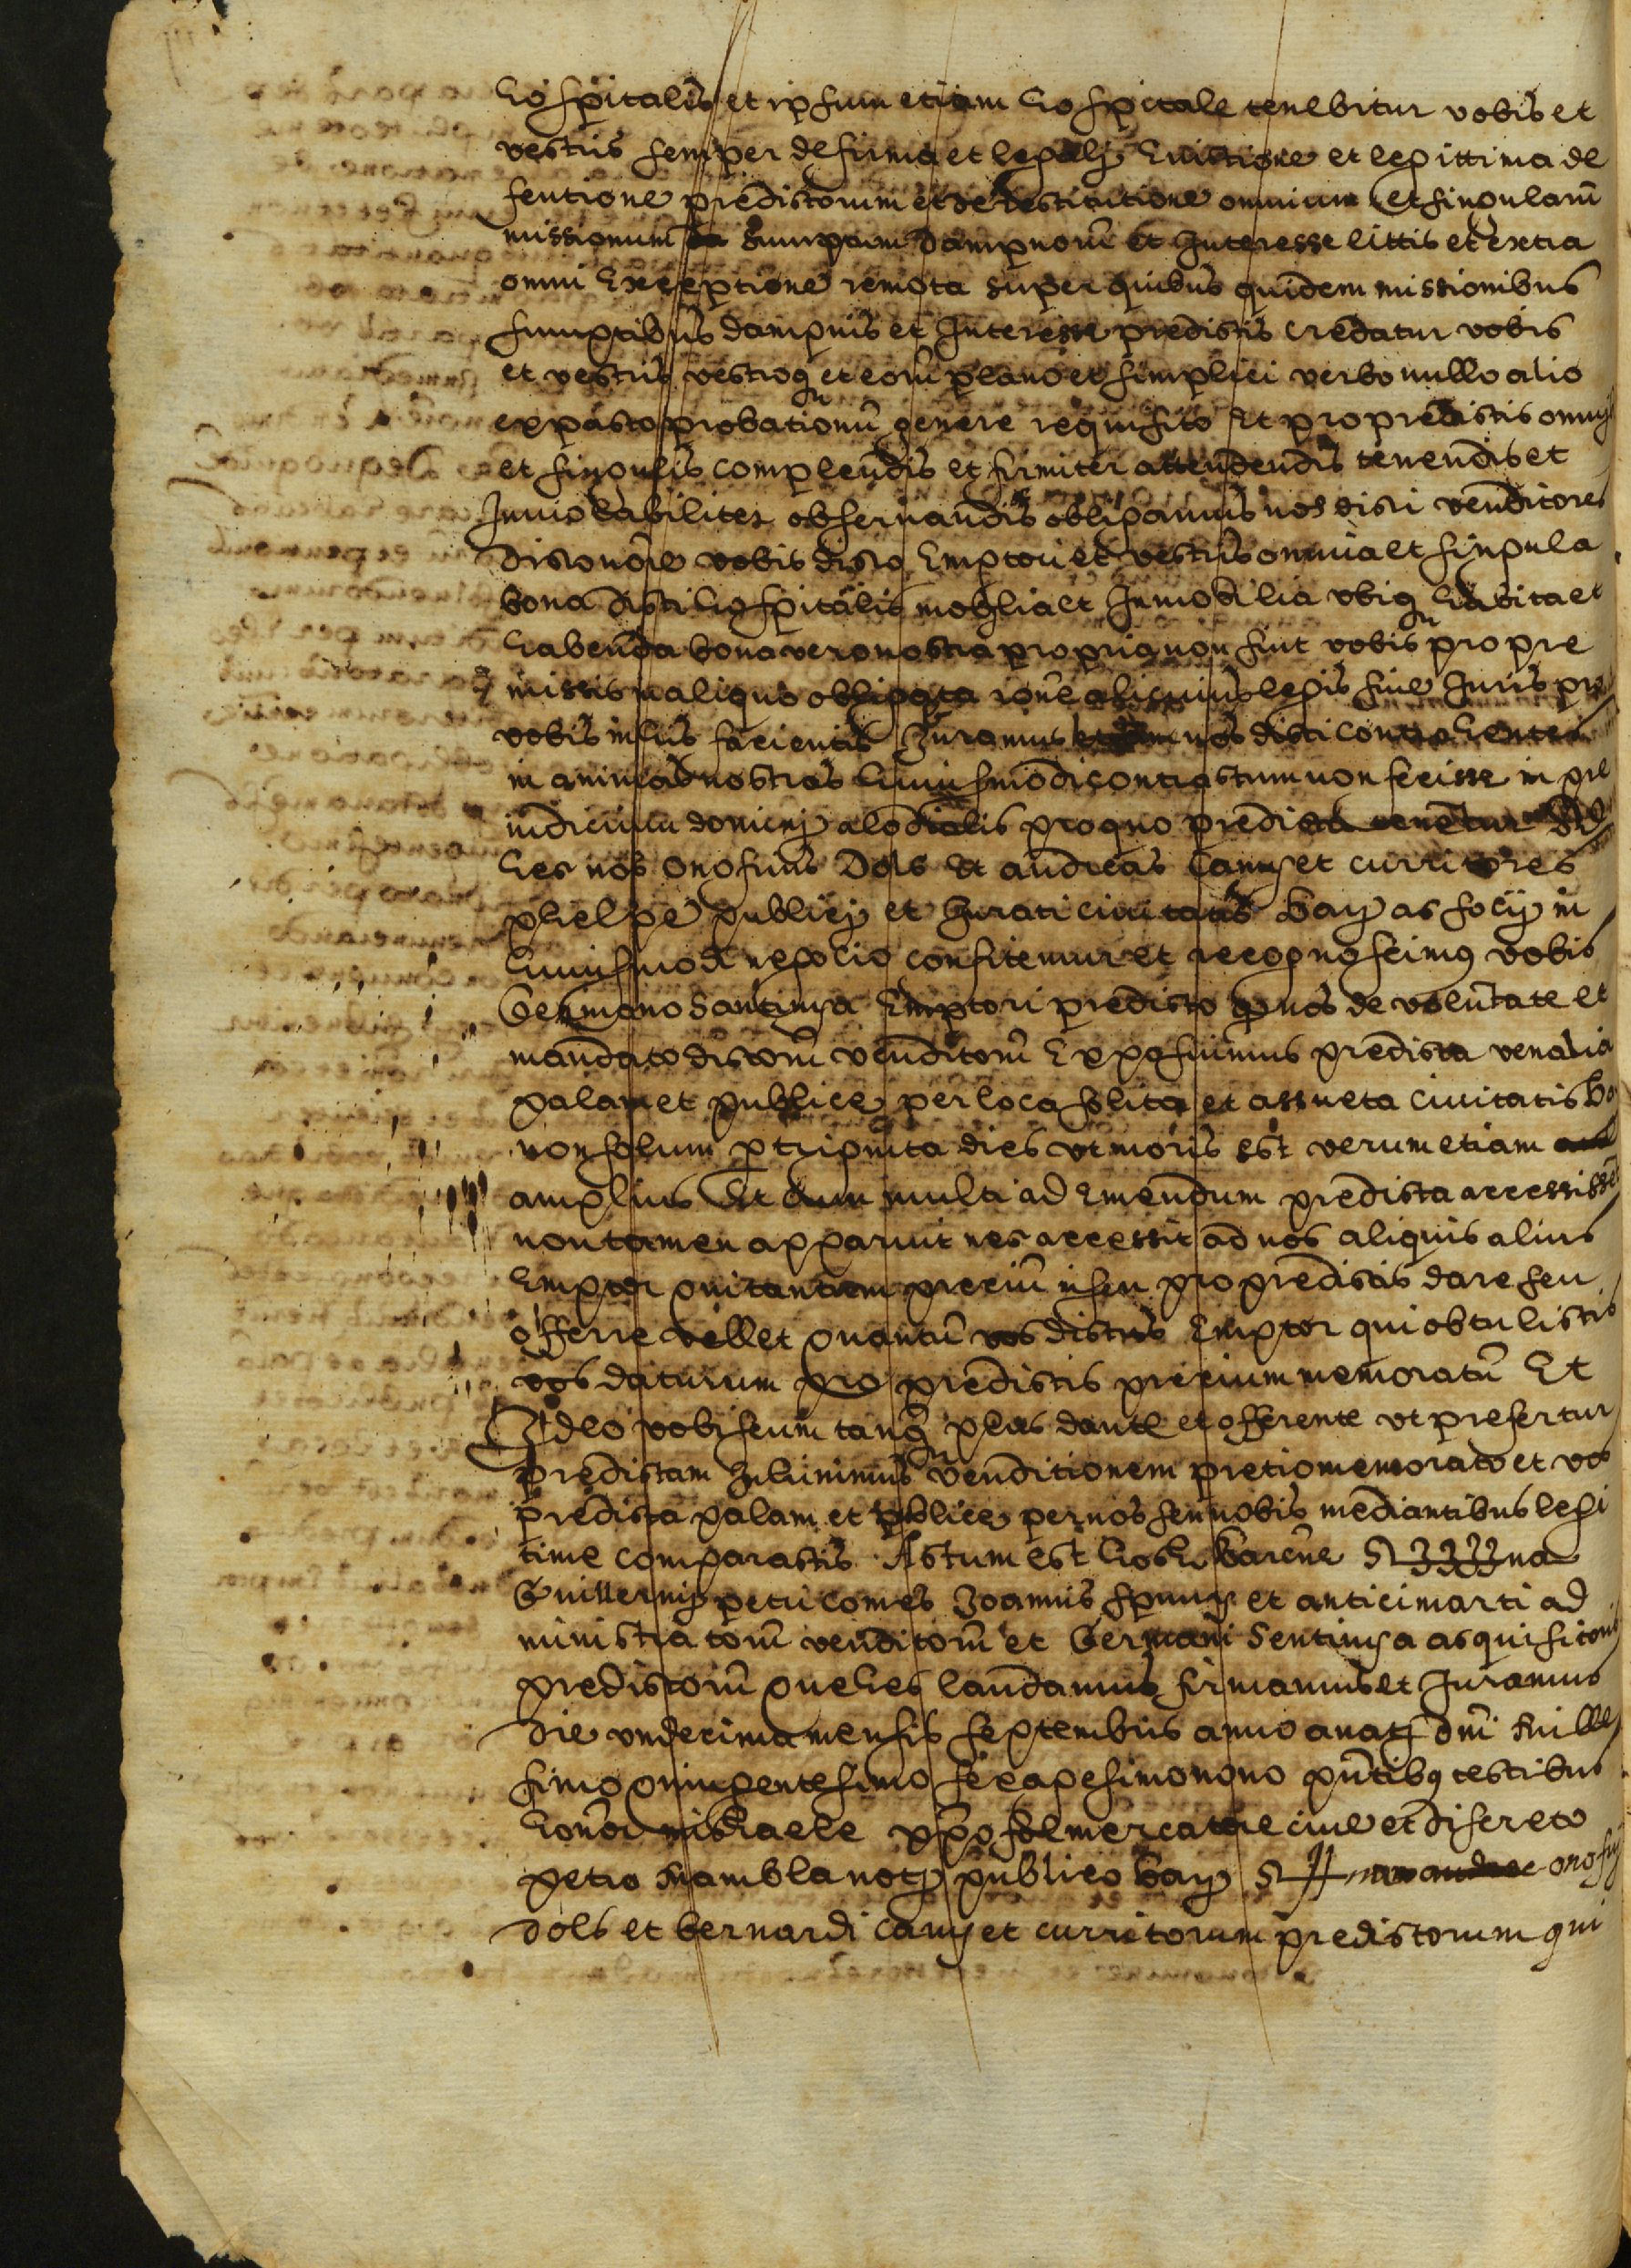 hospitalis et ipsum etiam hospitale tenebitur vobis et
vestris semper de firma et legali evictione et legittima de
fentione predictorum et de restitutione omnium et singularum
missionum sumptuum dampnorum et interesse littis et extra
omni exceptione remota super quibus quidem missionibus
sumptibus dampnis et interesse predictis credatur vobis
et vestris vestroq et eorum plano et simplici verbo nullo alio
ex pacto probationum genere requisito Et pro predictis omnibus
et singulis complendis et firmiter attendendis tenendis et
inviolabiliter observandis obligamus nos dicti venditores
dicto nomine vobis dicto emptori et vestris omnia et singula
bona dicti hospitalis mobilia et inmobilia ubiq habita et
habenda bona vero nostra propria non sint vobis pro pre
missis in aliquo obligata ratione alicuius legis sive juris pro
vobis in his facientis Juramus nos dicti contrahentes
in animas nostras huiusmodi contractum non fecisse in pre
iudicium dominj alodialis pro quo predicta tenetur Ad
hec nos onofrius Dols et andreas canyet curritores
phelpe publicj et jurati civitatis barj ac socij in
huiusmodi negocio confitemur et recognoscimus vobis
Germano Santinya emptori predicto q nos de voluntate et
mandato dictorum venditorum exposuimus predicta venalia
palam et publice per loca solita et assueta civitatis bar
non solum per triginta dies ut moris est verum etiam
amplius Et dum multi ad emendum predicta accessissent
non tamen apparuit nec accessit ad nos aliquis alius
emptor qui tantum precium in seu pro predictis dare seu
offerre vellet quantum vos dictus emptor qui obtulistis
vos daturum pro predictis precium memoratum Et
Ideo vobiscum tanq plus dante et offerente ut prefertur
predictam inhimimus venditionem pretio memorato et vos
predicta palam et publice per nos seu nobis mediantibus legi
time comparastis Actum est hoc barcne Sig na
Guillermj petri comes Joannis spuny et anticimarti ad
ministratorum venditorum et Germani Sentinya acquisitoris
predictorum que hec laudamus firmamus et juramus
die undecima mensis septembris anno a natj dni mille
simo quingentesimo sexagesimo nono pntibq testibus
honor michaele xpofol mercatore cive et discreto
petro mambla notj publico barj Sig onofrij
dols et bernardi canyet curritorum predictorum qui